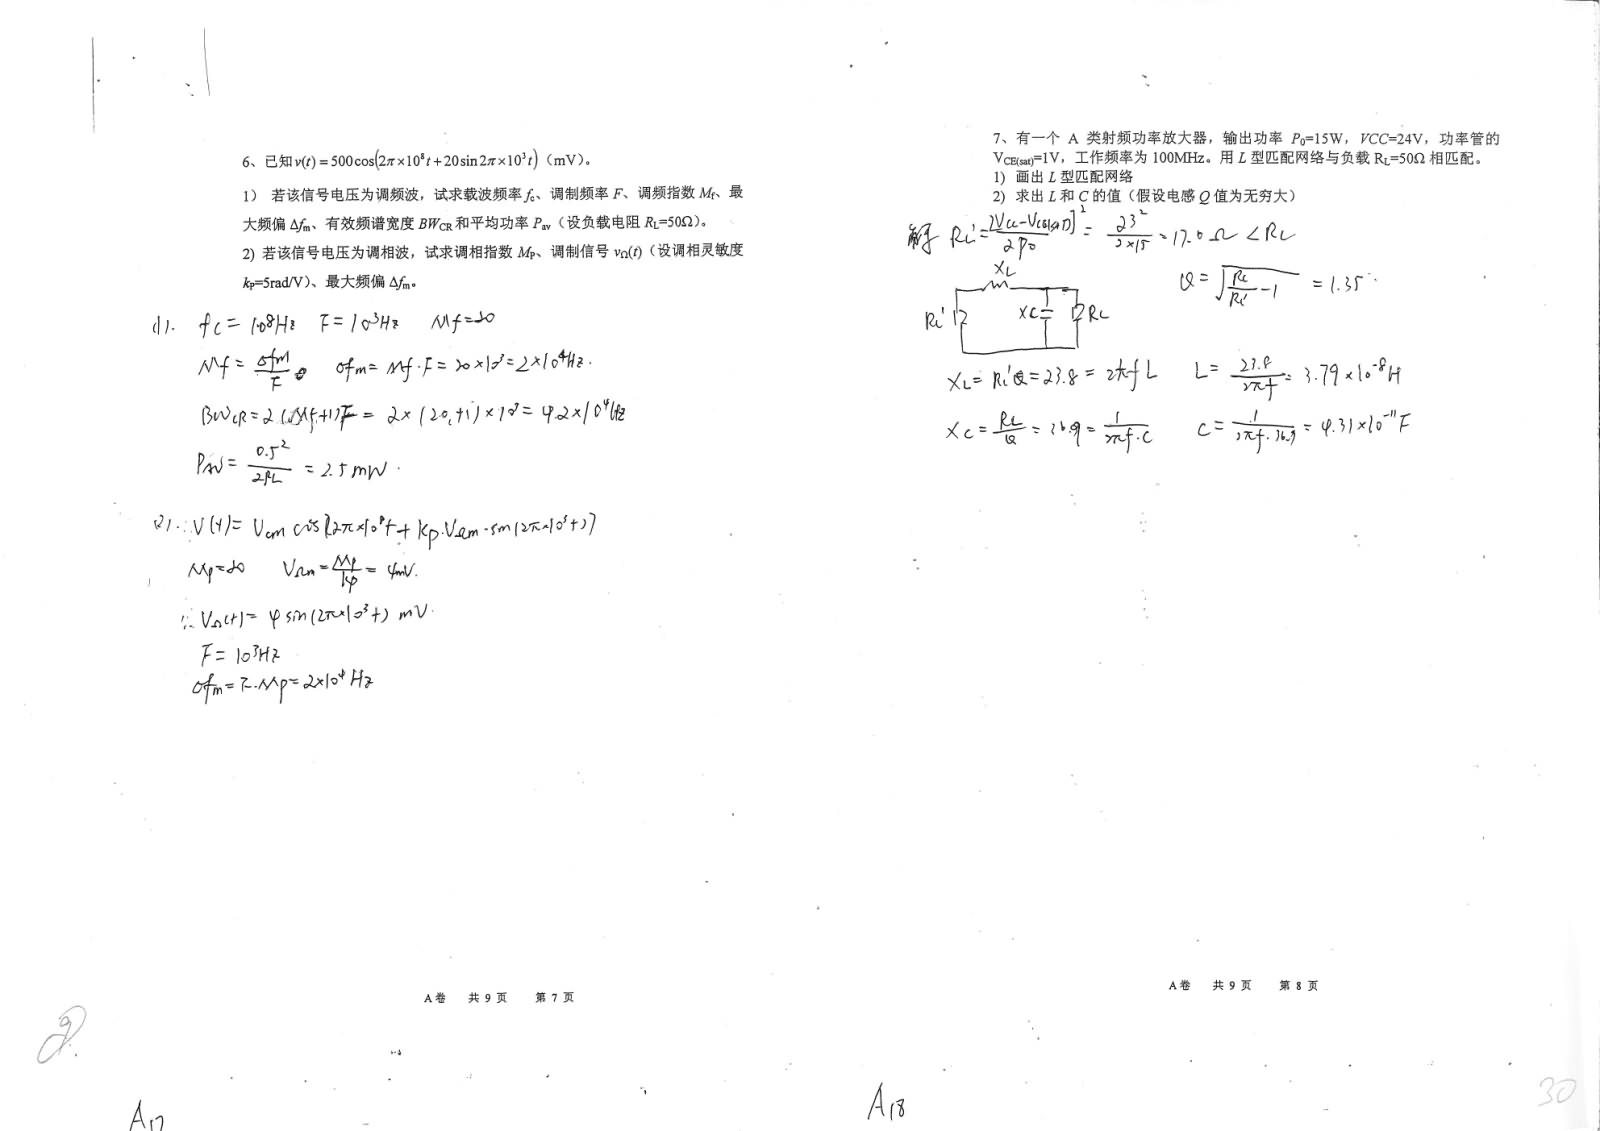 6、已知 v(t) = 500cos(2π×10⁸t+20sin2π×10³t)（mV）。
1） 若该信号电压为调频波，试求载波频率 fc、调制频率 F、调频指数 Mf、最
大频偏 Δfm、有效频谱宽度 BWCR 和平均功率 Pav（设负载电阻 RL=50Ω）。
2）若该信号电压为调相波，试求调相指数 MP、调制信号 vΩ(t)（设调相灵敏度
kP=5rad/V）、最大频偏 Δfm。
(1). fc = 10⁸Hz F=10³Hz Mf=20
Mf = Δfm/F Δfm = Mf·F = 20×10³ = 2×10⁴Hz.
BWCR = 2(Mf+1)F = 2×(20+1)×10³ = 4.2×10⁴Hz
PAV = 0.5²/2RL = 2.5mW.
(2). V(t) = Vcm cos[2π×10⁸t + kp·VΩm·sin(2π×10³t)]
Mp=20 VΩm = Mp/kp = 4mV.
∴ VΩ(t) = 4sin(2π×10³t) mV.
F = 10³Hz
Δfm = F·Mp = 2×10⁴Hz
A卷 共 9 页 第 7 页
A17
7、有一个 A 类射频功率放大器，输出功率 P0=15W，VCC=24V，功率管的
VCE(sat)=1V，工作频率为 100MHz。用 L 型匹配网络与负载 RL=50Ω 相匹配。
1） 画出 L 型匹配网络
2） 求出 L 和 C 的值（假设电感 Q 值为无穷大）
解 RL' = [VCC-VCE(SAT)]²/2P0 = 23²/2×15 = 17.0Ω < RL
Q = √(RL/RL' -1) = 1.35
XL
RL' XC RL
XL = RL'Q = 23.8 = 2πfL L = 23.8/2πf = 3.79×10⁻⁸H
XC = RL/Q = 36.9 = 1/2πf·C C = 1/2πf·36.9 = 4.31×10⁻¹¹F
A卷 共 9 页 第 8 页
A18
30